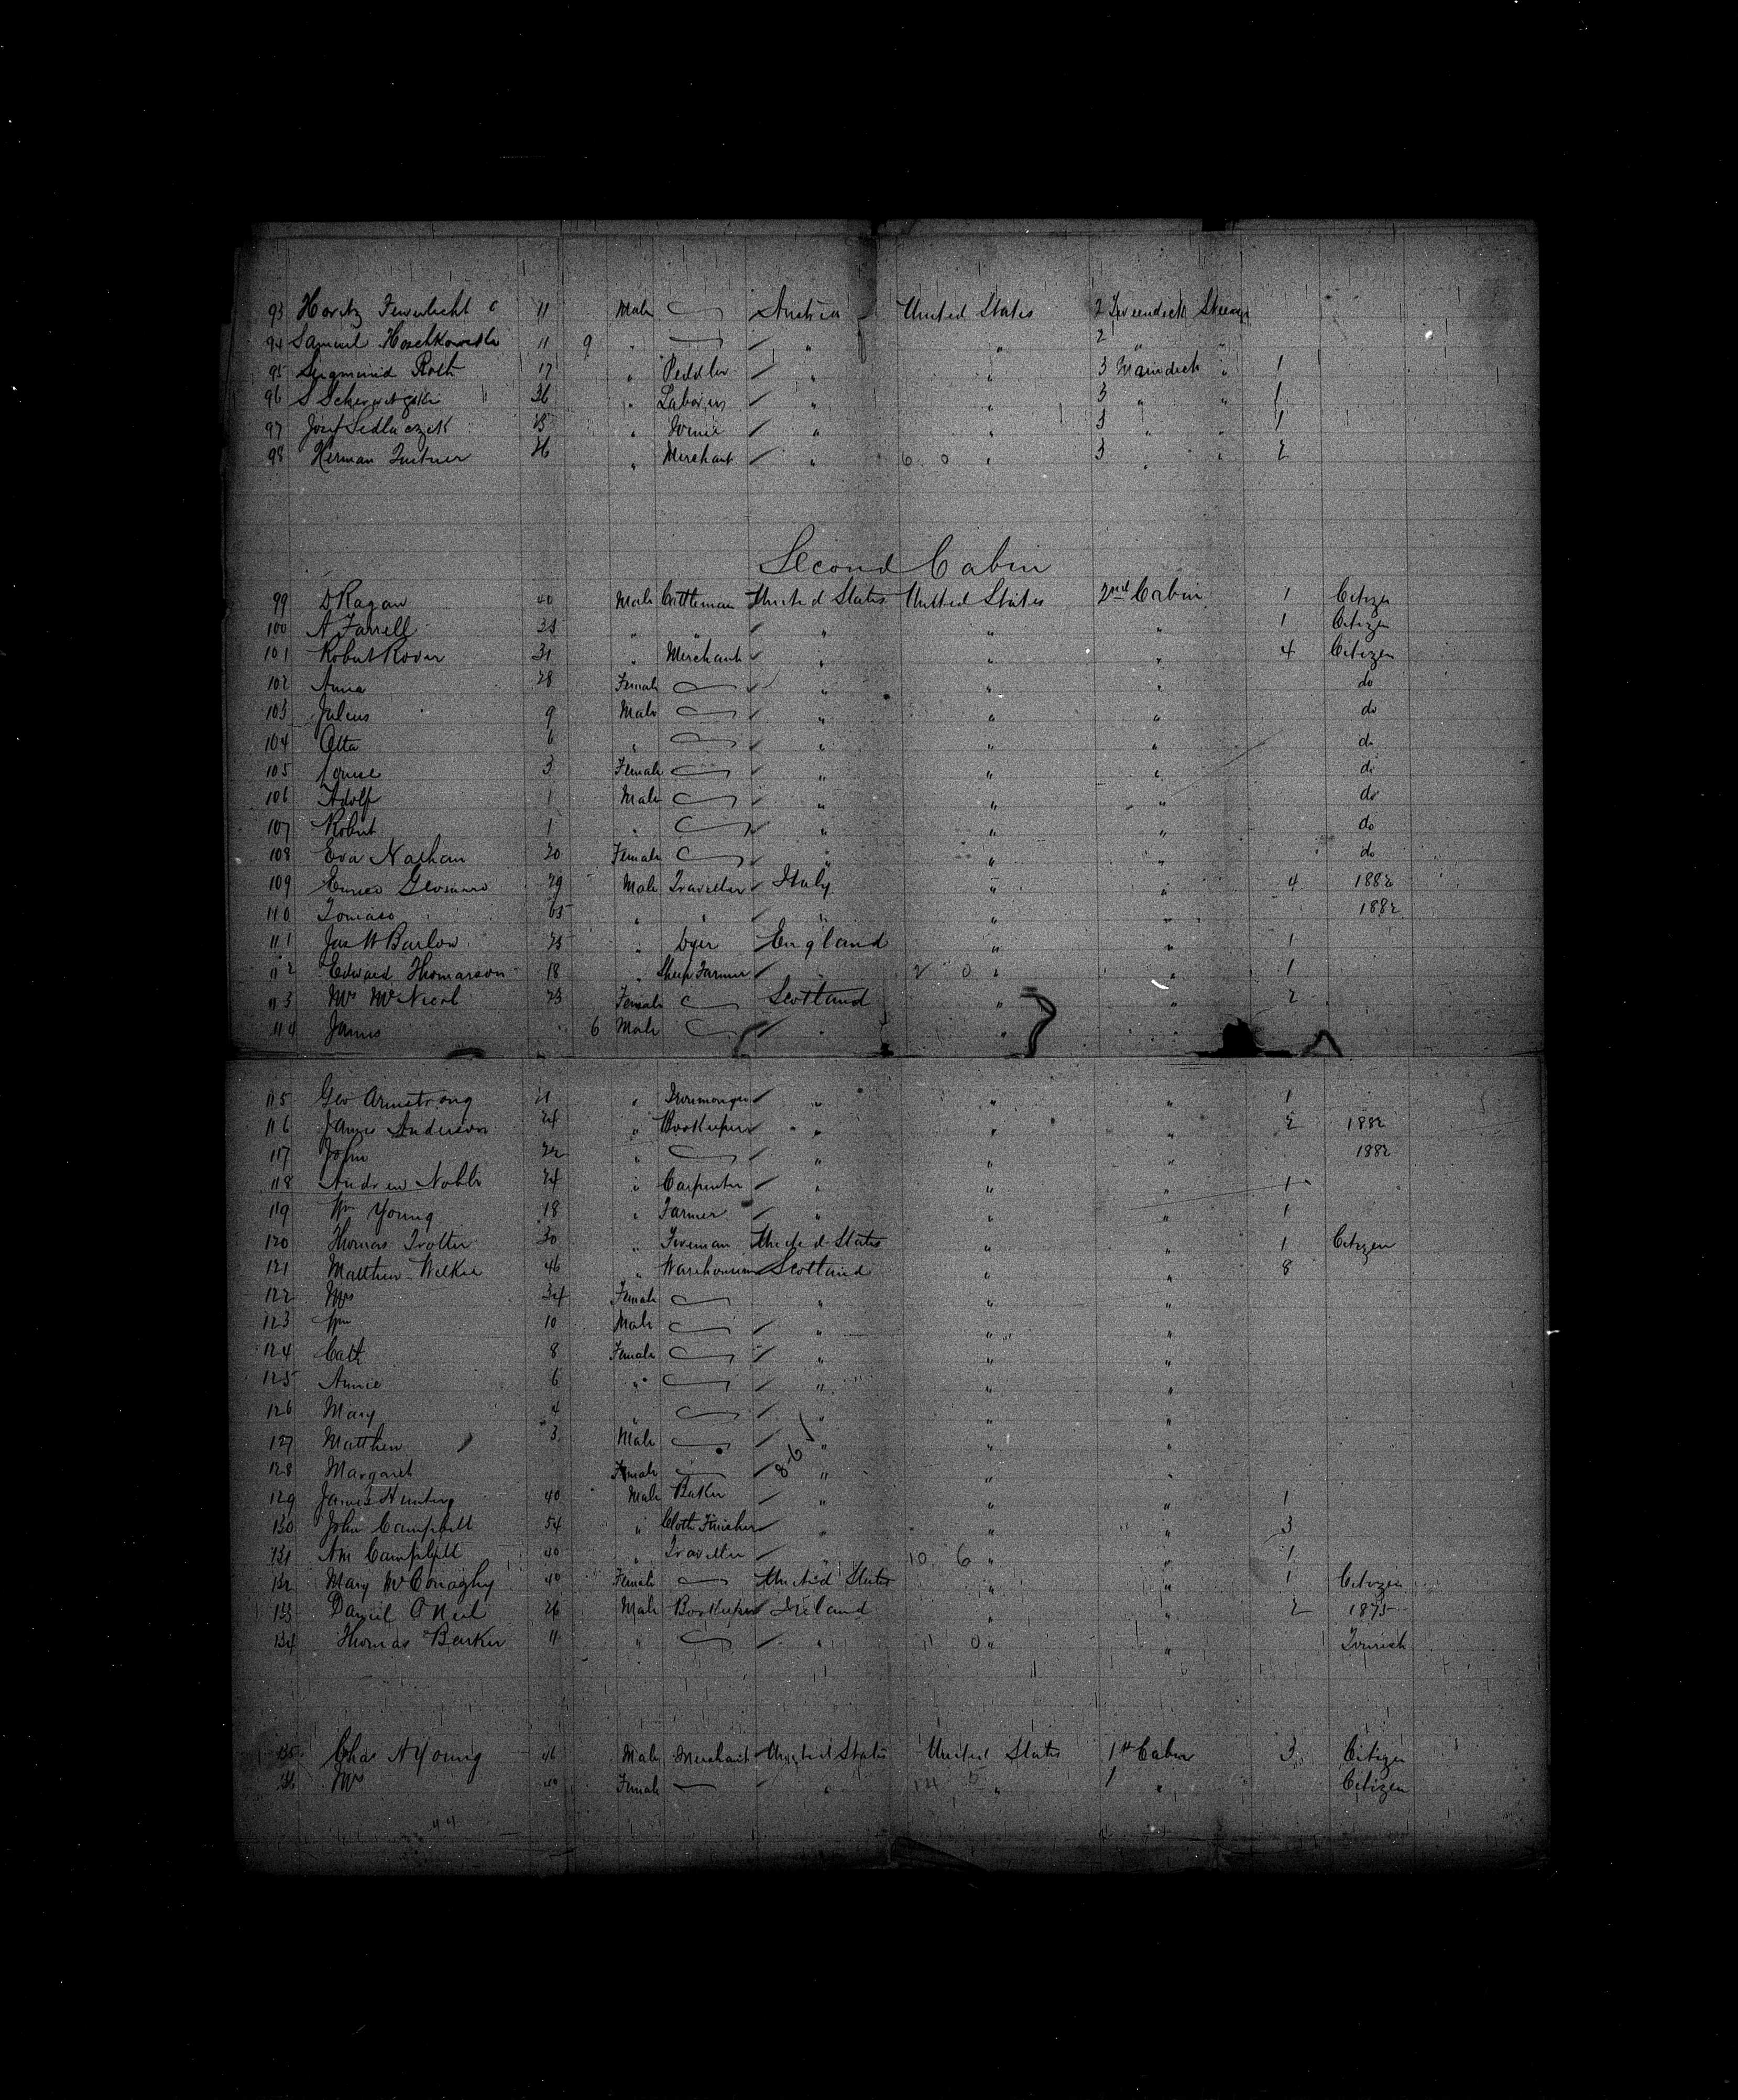 93 Moritz Feuerlicht 11 Male Austria United States 2 Tweendeck Steerage
94 Samuel 11 9 " " " 2 " "
95 Sigmund Roth 17 " Peddler " " 3 Maindeck " 1
96 S 36 " Laborer " " 3 " " 1
97 Josef Sedlaczek " " " 3 " " 1
98 Herman 36 " Merchant " 6 0 " 3 " " 2
Second Cabin
99 D Ragan 40 Male Cattleman United States United States 2nd Cabin 1 Citizen
100 A Farrell 33 " " " " " 1 Citizen
101 Robert Rover 31 " Merchant " " " 4 Citizen
102 Anna 28 Female " " " do
103 Julius 9 Male " " " do
104 Otto 6 " " " " do
105 Louise 3 Female " " " do
106 Adolf 1 Male " " " do
107 Robert 1 " " " " do
108 Eva Nathan 20 Female " " " do
109 Enrico 29 Male Traveller Italy " " 4 1882
110 Tomaso 65 " " " " " 1882
111 Jas W Barlow 25 " Dyer England " " 1
112 Edward Thomason 18 " Sheep Farmer " 2 0 " " 1
113 Mrs McNicol 23 Female Scotland " " 2
114 James 6 Male " " "
115 Geo Armstrong 21 " Ironmonger " " " 1
116 James Anderson 24 " Bookeeper " " " 2 1882
117 John 22 " " " " 1882
118 Andrew Noble 24 " Carpenter " " " 1
119 Wm Young 18 " Farmer " " " 1
120 Thomas Trotter 30 " Fireman United States " " 1 Citizen
121 Matthew Wilkie 46 " Warehouseman Scotland " " 8
122 Mrs 34 Female " " "
123 Wm 10 Male " " "
124 Cath 8 Female " " "
125 Annie 6 " " " "
126 Mary 4 " " " "
127 Matthew 3 Male " " "
128 Margaret Female 8-6 " " "
129 James Hunting 40 Male Baker " " " 1
130 John Campbell 54 " Cloth Finisher " " " 3
131 Am Campbell 40 " Traveller " 10 6 " " 1
132 Mary McConaghy 40 Female United States " " 1 Citizen
133 Daniel O'Neil 26 Male Bookeeper Ireland " " 2 1875
134 Thomas Barker 11 " " 11 0 " " Tourist
135 Chas A Young 46 Male Merchant United States United States 1st Cabin 3 Citizen
136 Mrs 40 Female " 14 5 " 1 " Citizen
44